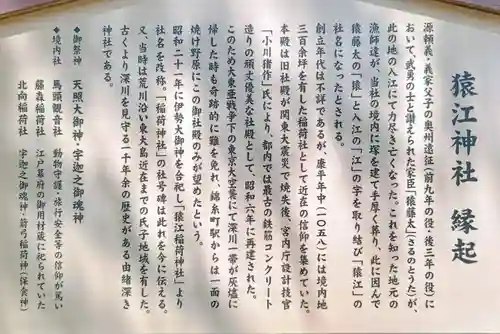 猿江神社 縁起
源頼義・義家父子の奥州遠征（前九年の役・後三年の役）に
おいて、武勇の士と讃えられた家臣「猿藤太」（さるのとうた）が、
此の地の入江にて力尽きて亡くなった。これを知った地元の
漁師達が、当社の境内に塚を建て手厚く葬り、此に因んで
猿藤太の「猿」と入江の「江」の字を取り結び「猿江」の
社名になったとされる。
創立年代は不詳であるが、康平年中（一〇五八）には境内地
三百余坪を有した稲荷社として近在の信仰を集めていた。
本殿は旧社殿が関東大震災で焼失後、宮内庁設計技官
「小川猪作」氏により、都内では最古の鉄筋コンクリート
造りの頑丈優美な社殿として、昭和六年に再建された。
このため大東亜戦争下の東京大空襲にて深川一帯が灰燼に
帰した時も奇跡的に難を免れ、錦糸町駅からは一面の
焼け野原にこの御社殿のみが望めたという。
昭和二十一年に伊勢大御神を合祀し「猿江稲荷神社」より
社名を改称。「稲荷神社」の社号碑は此れを今に伝える。
又、当時は荒川沿い東大島近在までの氏子地域を有した。
古くより深川を見守る一千年余の歴史がある由緒深き
神社である。
◆御祭神 天照大御神・宇迦之御魂神
◆境内社 馬頭観音社 動物守護・旅行安全等の信仰が篤い
藤森稲荷社 江戸幕府の御用材蔵に祀られていた
北向稲荷社 宇迦之御魂神・箭弓稲荷神（保食神）